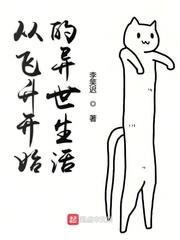 从飞升开始
的异世生活
李笑迟 ◎ 著